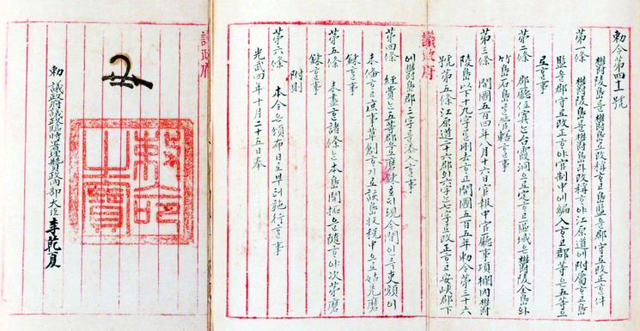 勅令第四十一號
鬱陵島를鬱島로改稱ᄒᆞ고島監을郡守로改正ᄒᆞᆫ件
第一條 鬱陵島를鬱島라改稱ᄒᆞ야江原道에附屬ᄒᆞ고島
監을郡守로改正ᄒᆞ야官制中에編入ᄒᆞ고郡等은五等으
로ᄒᆞᆯ事
第二條 郡廳位寘ᄂᆞᆫ台霞洞으로定ᄒᆞ고區域은鬱陵全島와
竹島石島를管轄ᄒᆞᆯ事
第三條 開國五百四年八月十六日官報中官廳事項欄內鬱
陵島以下十九字를刪去ᄒᆞ고開國五百五年勅令第三十六
號第五條江原道二十六郡의六字ᄂᆞᆫ七字로改正ᄒᆞ고安峽郡下
에鬱島郡三字를添入ᄒᆞᆯ事
議政府
第四條 經費ᄂᆞᆫ五等郡으로磨鍊호ᄃᆡ現今間인즉吏額이
未備ᄒᆞ고庶事草創ᄒᆞ기로該島收稅中으로姑先磨
鍊ᄒᆞᆯ事
第五條 未盡ᄒᆞᆫ諸條ᄂᆞᆫ本島開拓을隨ᄒᆞ야次第磨
鍊ᄒᆞᆯ事
附則
第六條 本令은頒布日로부터施行ᄒᆞᆯ事
光武四年十月二十五日奉
議政府
勅命之寶
勅 議政府議政臨時署理贊政內部大臣李乾夏